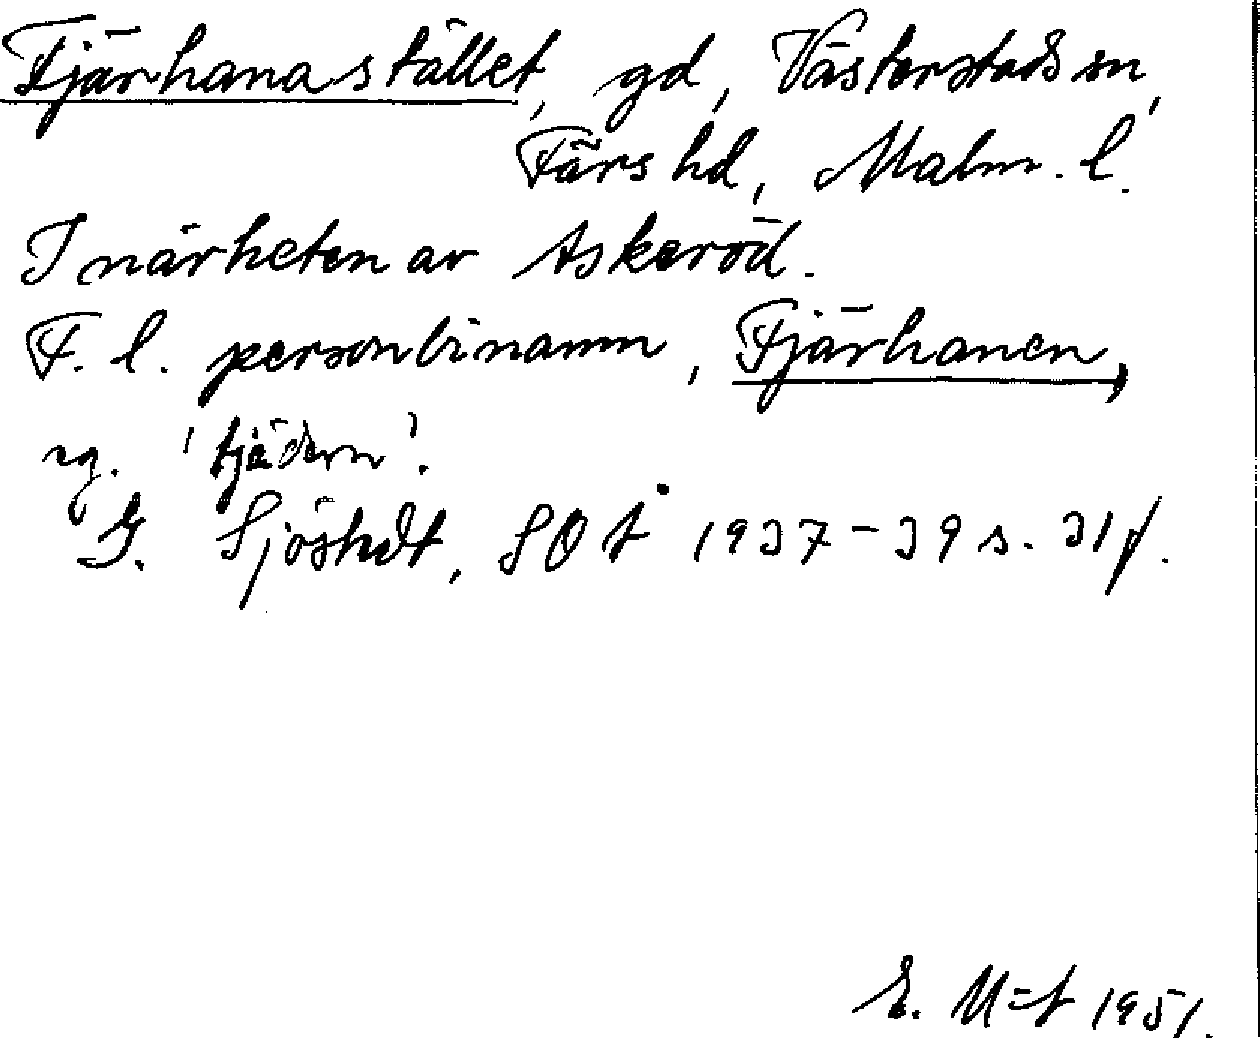 Fjärhanastället, gd, Västerstads sn,
Färs hd, Malm. l.
I närheten av Askeröd.
F. l. personbinamn, Fjärhanen,
eg. 'tjädern'.
G. Sjöstedt, SOÅ 1937-39 s. 31 f.
E. 1951.